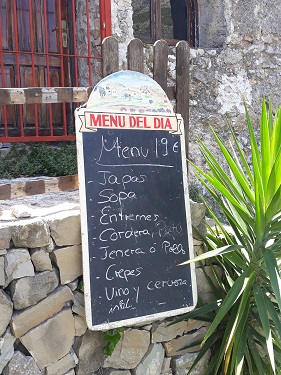 MENU DEL DIA
Menu 19€
- Tapas
- Sopa
- Entremes
- Cordera,
- Ternera o Pollo
- Crepes
- Vino y cerveza
incl.